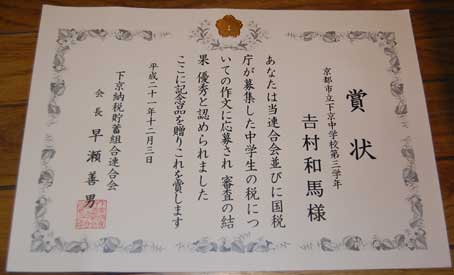 賞状
京都市立下京中学校第三学年
吉村和馬様
あなたは当連合会並びに国税
庁が募集した中学生の税につ
いての作文に応募され審査の結
果優秀と認められました
ここに記念品を贈りこれを賞します
平成二十一年十二月三日
下京納税貯蓄組合連合会
会長 早瀬善男